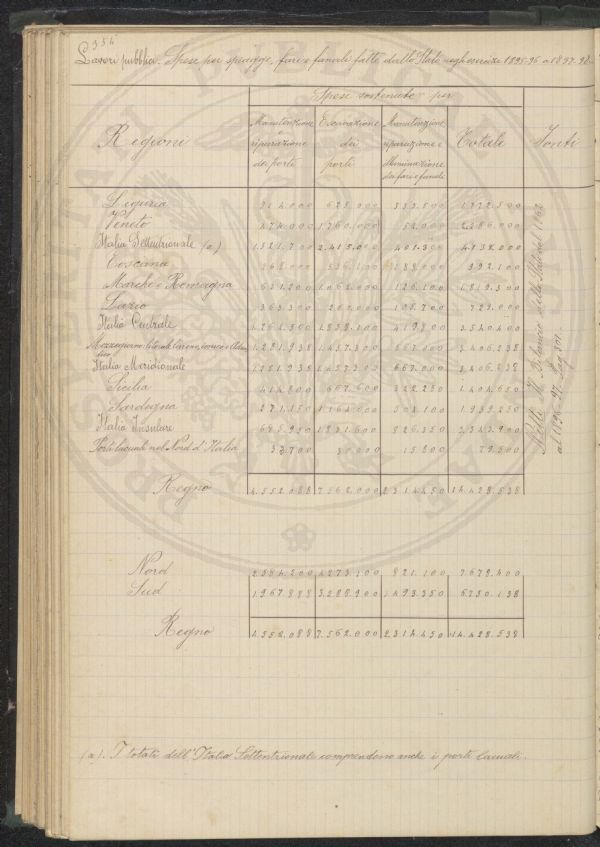 354
Lavori pubblici. Spese per spiagge, fari e fanali fatte dallo Stato negli esercizi 1895-96 a 1897-98.
Spese sostenute per
Regioni
Manutenzione e riparazione dei porti
Escavazione dei porti
Manutenzione riparazione e illuminazione dei fari e fanali
Totale
Fonti
Liguria 914.000 625.000 333.500 1.872.500
Veneto 474.000 1.760.000 52.000 2.286.000
Italia Settentrionale (a) 1.321.700 2.415.000 401.300 4.138.000
Toscana 268.000 536.100 188.000 992.100
Marche e Romagna 631.200 1.062.000 126.100 1.819.300
Lazio 363.300 260.000 105.700 729.000
Italia Centrale 1.262.500 1.858.100 419.800 3.540.400
Mezzogiorno 1.281.938 1.457.300 667.000 3.406.238
Italia Meridionale 1.281.938 1.457.300 667.000 3.406.238
Sicilia 414.800 667.600 322.250 1.404.650
Sardegna 271.150 1.164.000 504.100 1.939.250
Italia Insulare 685.950 1.831.600 826.350 3.343.900
Porti lacuali nel Nord d'Italia 33.700 30.000 15.800 79.500
Regno 4.552.088 7.562.000 2.314.450 14.428.538
Nitti. Il bilancio dello Stato dal 1862
al 1896-97. Pag 301.
Nord 2.584.200 4.273.100 821.100 7.678.400
Sud 1.967.888 3.288.900 1.493.350 6.750.138
Regno 4.552.088 7.562.000 2.314.450 14.428.538
(a). I totali dell'Italia Settentrionale comprendono anche i porti lacuali.